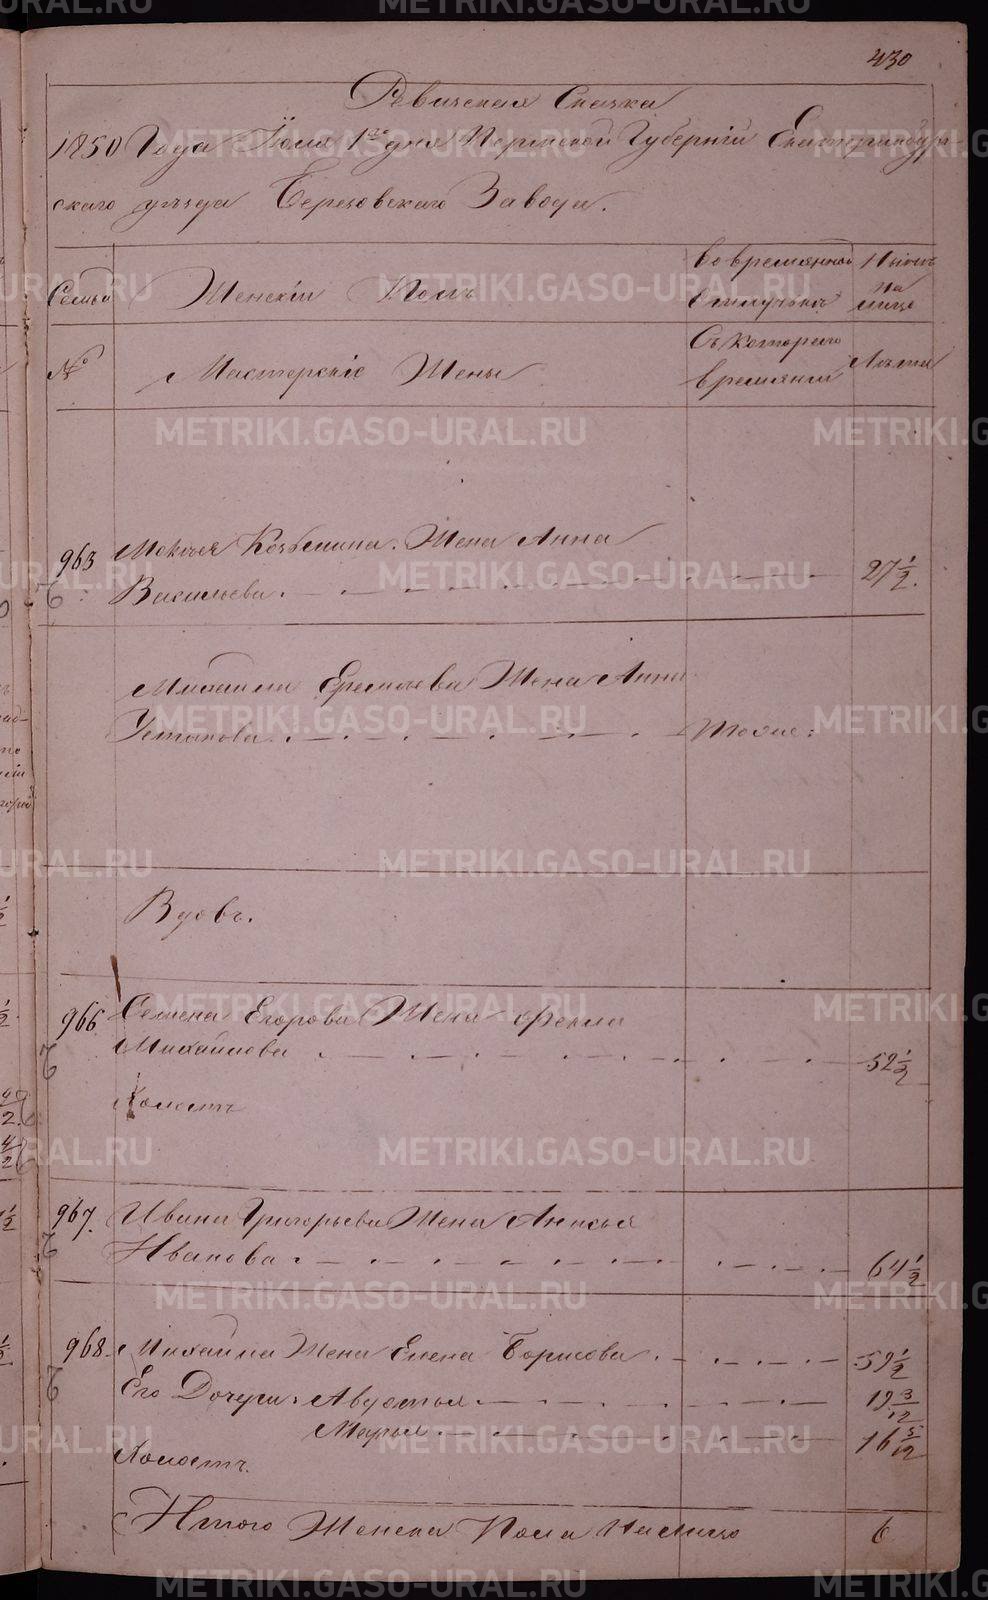 430
Ревизская Сказка
1850 Года Июля 1го дня Пермской Губернiи Екатеринбург-
скаго уезда Березовскаго Завода.
Семьи Женскiй Полъ Во временной отлучкѣ Нынѣ на лицо
№ Мастерскiе Жены Съ котораго времяни Лѣта
963 Мокѣя Козьмина. Жена Анна
Васильева. 27 1/2.
Михаила Еремѣева Жена Анна
Устинова Тоже:
Вдовъ.
966 Семена Егорова Жена Фекла
Михайлова 52 1/2
Холостъ
967. Ивана Григорьева Жена Анисья
Иванова 64 1/2
968. Михаила Жена Елена Борисова 59 1/2
Его Дочери: Авдотья 19 3/12
Марья 16 5/12
Холостъ.
Итого Женска Пола На лицо 6
METRIKI.GASO-URAL.RU